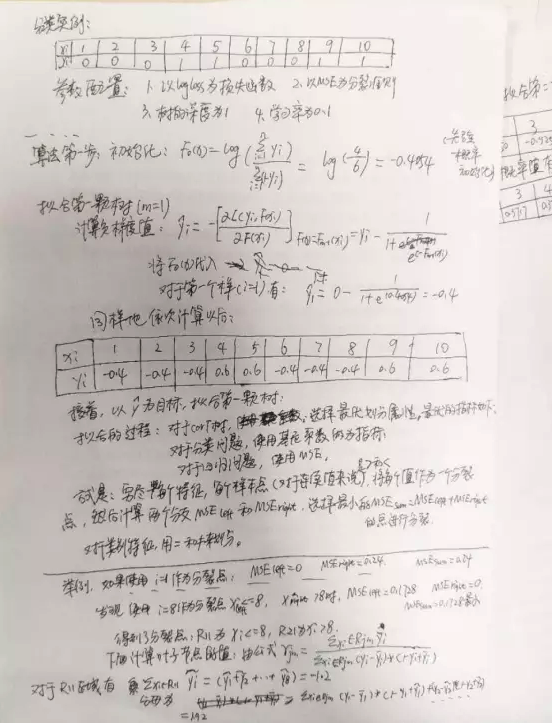 分类实例:
xi 1 2 3 4 5 6 7 8 9 10
yi 0 0 0 1 1 0 0 0 1 1
参数配置: 1. 以logloss为损失函数 2. 以MSE为分裂准则
3. 树的深度为1 4. 学习率为0.1
算法第一步: 初始化: F0(x) = log(Σyi / Σ(1-yi)) = log(4/6) = -0.4054 (先验概率初始化)
拟合第一颗树 (m=1)
计算负梯度值: ỹi = -[∂L(yi, F(xi)) / ∂F(xi)] F(x)=Fm-1(x) = yi - 1/(1+e^-Fm-1(xi))
将F0(x)代入
对于第一个样本(i=1)有: ỹ1 = 0 - 1/(1+e^(0.4054)) = -0.4
同样地依次计算以后:
xi 1 2 3 4 5 6 7 8 9 10
ỹi -0.4 -0.4 -0.4 0.6 0.6 -0.4 -0.4 -0.4 0.6 0.6
接着, 以ỹ为目标, 拟合第一颗树:
拟合的过程: 对于cart树, 选择最优划分属性, 最优的指标如下:
对于分类问题, 使用基尼系数作为指标
对于回归问题, 使用MSE,
试是: 穷尽每个特征, 每个样本点 (对于连续值来说), 将每个值作为一个分裂
点, 然后计算两个分支 MSE left 和 MSE right, 选择最小的MSE sum = MSE left + MSE right
的点进行分裂.
对于类别特征, 用=和≠来划分.
举例, 如果使用 i=1作为分裂点: MSE left=0 MSE right=0.24 MSE sum=0.24
发现 使用 i=8作为分裂点 x left<=8, x right>8时, MSE left=0.1728 MSE right=0
MSE sum=0.1728最小
得到了分裂点: R11为 xi<=8, R21为xi>8.
下面计算叶子节点的值: 由公式 γjm = Σxi∈Rjm ỹi / Σxi∈Rjm (yi-ỹi)*(1-yi+ỹi)
对于R11区域有 Σxi∈R11 ỹi = (ỹ1+ỹ2+...+ỹ8) = -1.2
Σxi∈R11 (yi-ỹi)*(1-yi+ỹi)
=1.92